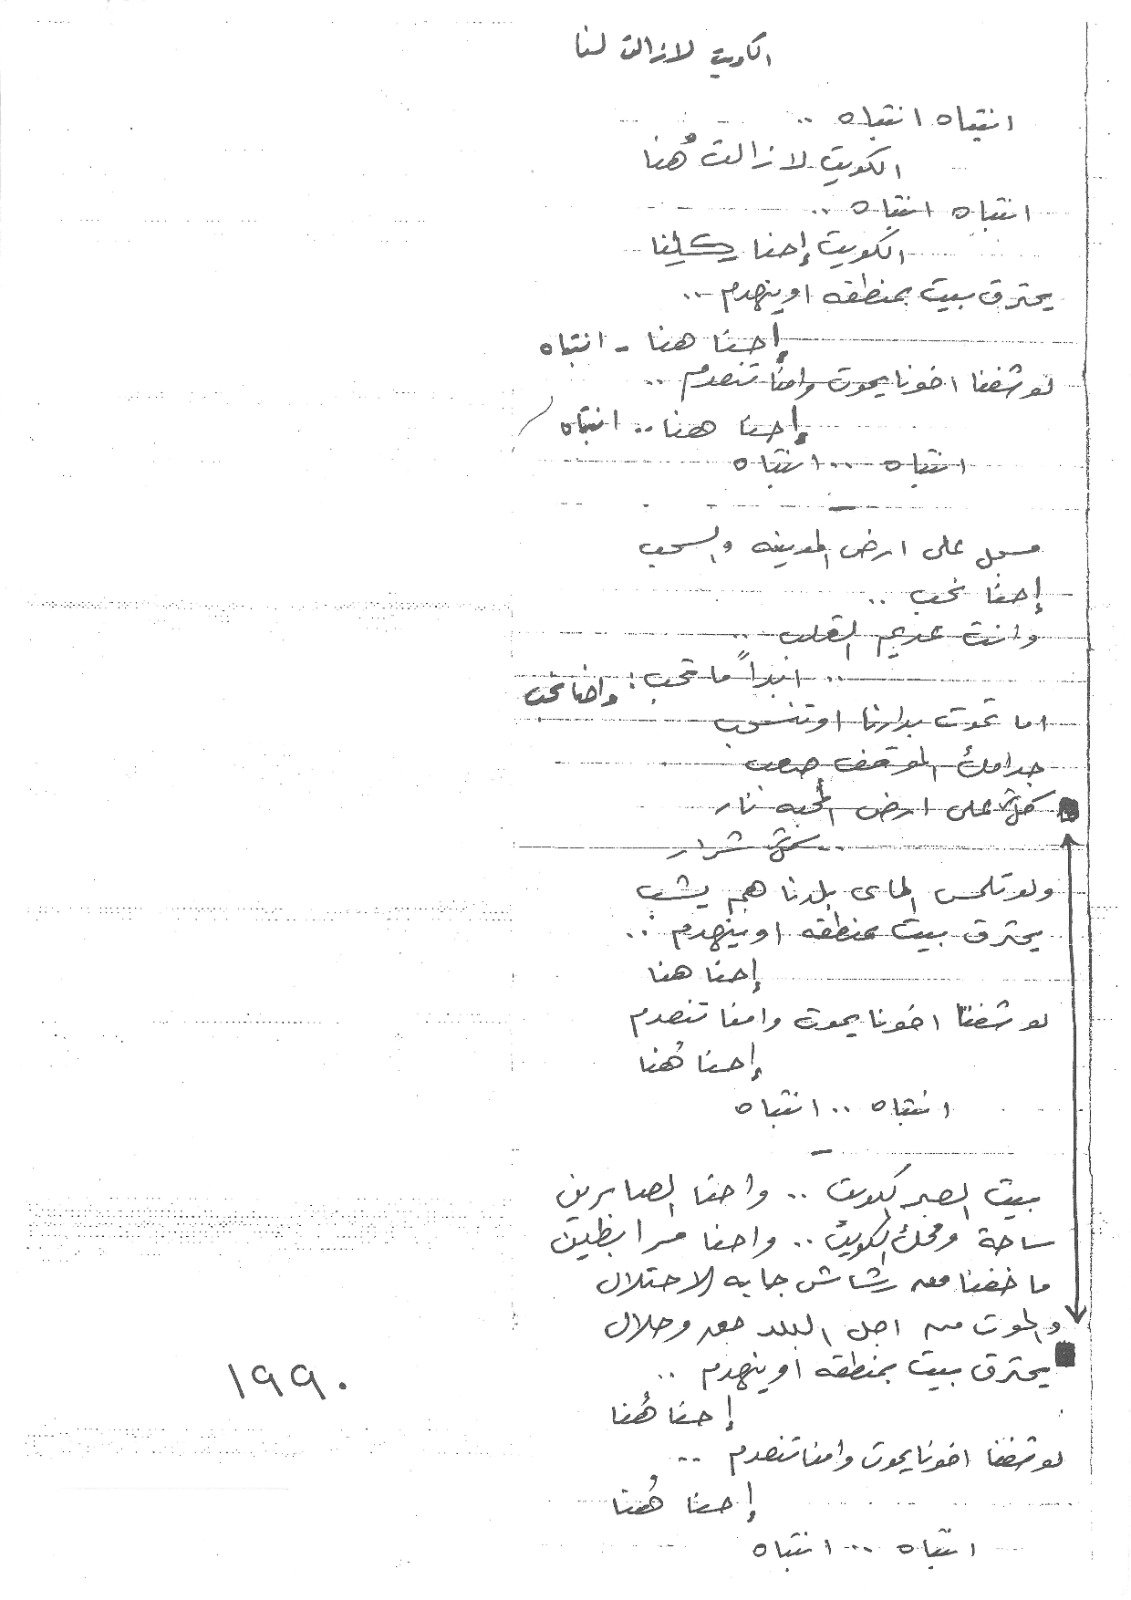 الكويت لازالت لنا
انتباه انتباه ..
الكويت لازالت هُنا
انتباه انتباه ..
الكويت إحنا كلنا
يحترق بيت بمنطقه اوينهدم ..
إحنا هنا - انتباه
لو شفنا اخونا يموت وامنا تنصدم ..
إحنا هنا .. انتباه
انتباه .. انتباه
على ارض المدينه والسحب
إحنا نحب ..
وانت عديم القلب ..
.. ابداً ما تحب . واحنا نحب
اما تموت بدارنا اوتنسحب
جدامك الموقف صعب
على ارض المحبه نار
.. شرار
ولو تلمس الماى بلدنا هم يشب
يحترق بيت بمنطقه اوينهدم ..
إحنا هنا
لو شفنا اخونا يموت وامنا تنصدم
إحنا هُنا
انتباه .. انتباه
بيت الصبر الكويت .. واحنا الصابرين
ساحة ومحك الكويت .. واحنا مرابطين
ما خفنا من رشاش جابه الاحتلال
والموت من اجل البلد حق وحلال
يحترق بيت بمنطقه اوينهدم ..
إحنا هُنا
لو شفنا اخونا يموت وامنا تنصدم ..
إحنا هُنا
انتباه .. انتباه
١٩٩٠